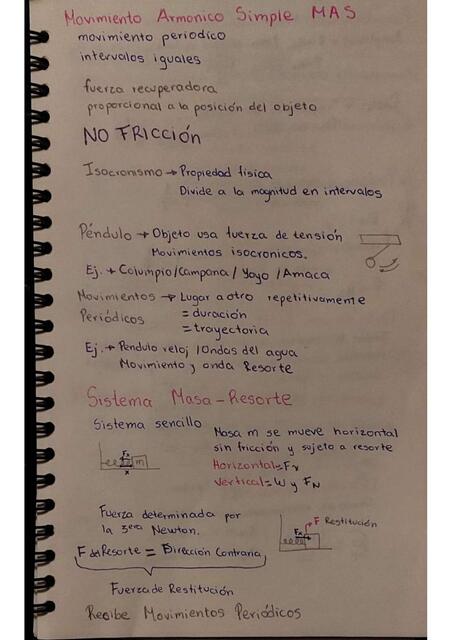 Movimiento Armonico Simple MAS
movimiento periodico
intervalos iguales
fuerza recuperadora
proporcional a la posición del objeto
NO FRICCIÓN
Isocronismo → Propiedad física
Divide a la magnitud en intervalos
Péndulo → Objeto usa fuerza de tensión
Movimientos isocronicos.
Ej. → Columpio/Campana/Yoyo/Amaca
Movimientos → Lugar a otro repetitivamente
Periódicos = duración
= trayectoria
Ej. → Pendulo reloj /Ondas del agua
Movimiento y onda Resorte
Sistema Masa-Resorte
Sistema sencillo
Masa m se mueve horizontal
sin fricción y sujeto a resorte
Horizontal=Fx
Vertical=W y FN
Fx
m
x
Fuerza determinada por
la 3era Newton.
F Restitución
Fx
F del Resorte = Dirección Contraria
Fuerza de Restitución
Recibe Movimientos Periódicos